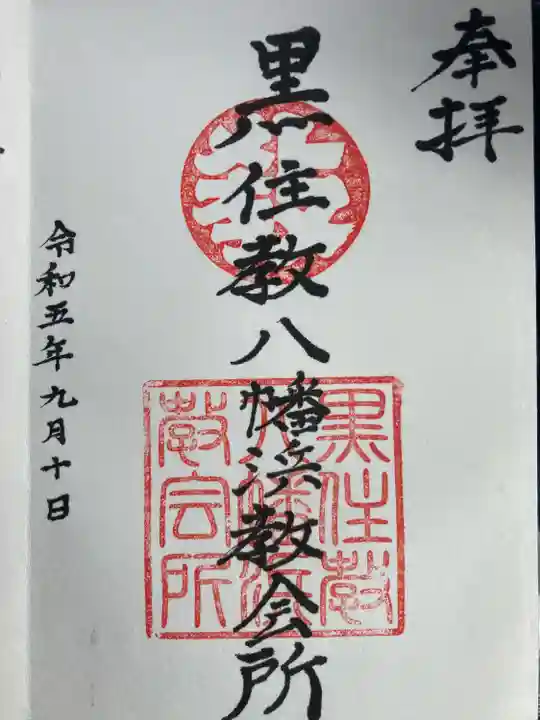 奉拝
黒住教八幡浜教会所
黒住教
八幡浜
教会所
令和五年九月十日